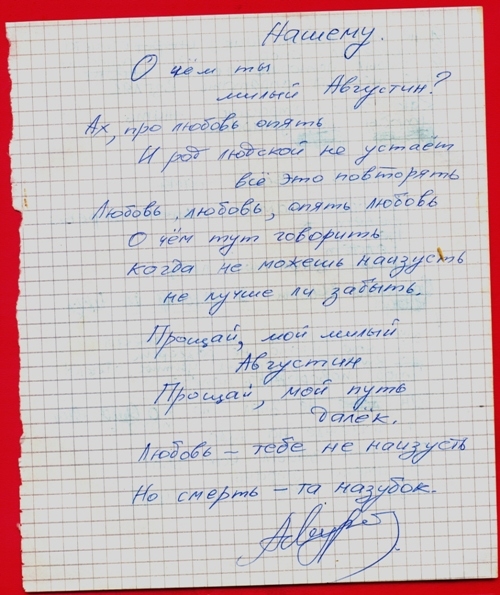 Нашему.
О чём ты
милый Августин?
Ах, про любовь опять
И род людской не устаёт
всё это повторять
Любовь, любовь, опять любовь
О чём тут говорить
когда не можешь наизусть
не лучше ли забыть.
Прощай, мой милый
Августин
Прощай, мой путь
далёк.
Любовь – тебе не наизусть
Но смерть – та назубок.